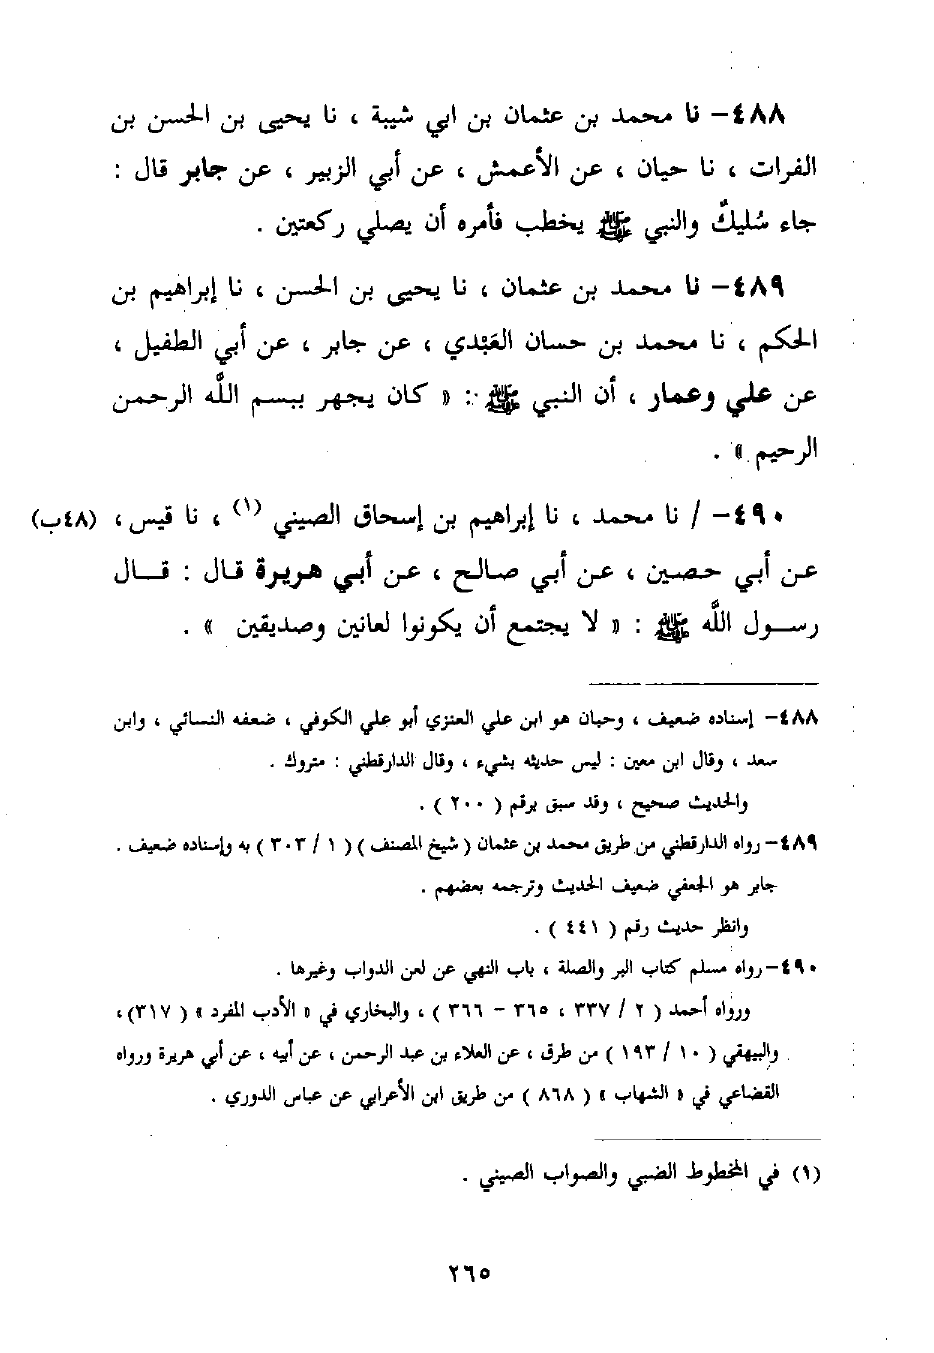 ٤٨٨– نا محمد بن عثمان بن ابي شيبة ، نا يحيى بن الحسن بن
الفرات ، نا حيان ، عن الأعمش ، عن أبي الزبير ، عن جابر قال :
جاء سُليكٌ والنبي ﷺ يخطب فأمره أن يصلي ركعتين .
٤٨٩– نا محمد بن عثمان ، نا يحيى بن الحسن ، نا إبراهيم بن
الحكم ، نا محمد بن حسان العَبْدي ، عن جابر ، عن أبي الطفيل ،
عن علي وعمار ، أن النبي ﷺ : « كان يجهر ببسم اللَّه الرحمن
الرحيم » .
٤٩٠– / نا محمد ، نا إبراهيم بن إسحاق الصيني (١) ، نا قيس ، (٤٨ب)
عن أبي حصين ، عن أبي صالح ، عن أبي هريرة قال : قـــال
رســول اللَّه ﷺ : « لا يجتمع أن يكونوا لعانين وصديقين » .
٤٨٨– إسناده ضعيف ، وحبان هو ابن علي العنزي أبو علي الكوفي ، ضعفه النسائي ، وابن
سعد ، وقال ابن معين : ليس حديثه بشيء ، وقال الدارقطني : متروك .
والحديث صحيح ، وقد سبق برقم ( ٢٠٠ ) .
٤٨٩– رواه الدارقطني من طريق محمد بن عثمان ( شيخ المصنف ) ( ١ / ٣٠٣ ) به وإسناده ضعيف .
جابر هو الجعفي ضعيف الحديث وترجمه بعضهم .
وانظر حديث رقم ( ٤٤١ ) .
٤٩٠–رواه مسلم كتاب البر والصلة ، باب النهي عن لعن الدواب وغيرها .
ورواه أحمد ( ٢ / ٣٣٧ ، ٣٦٥ – ٣٦٦ ) ، والبخاري في « الأدب المفرد » ( ٣١٧) ،
والبيهقي ( ١٠ / ١٩٣ ) من طرق ، عن العلاء بن عبد الرحمن ، عن أبيه ، عن أبي هريرة ورواه
القضاعي في « الشهاب » ( ٨٦٨ ) من طريق ابن الأعرابي عن عباس الدوري .
(١) في المخطوط الضبي والصواب الصيني .
٢٦٥